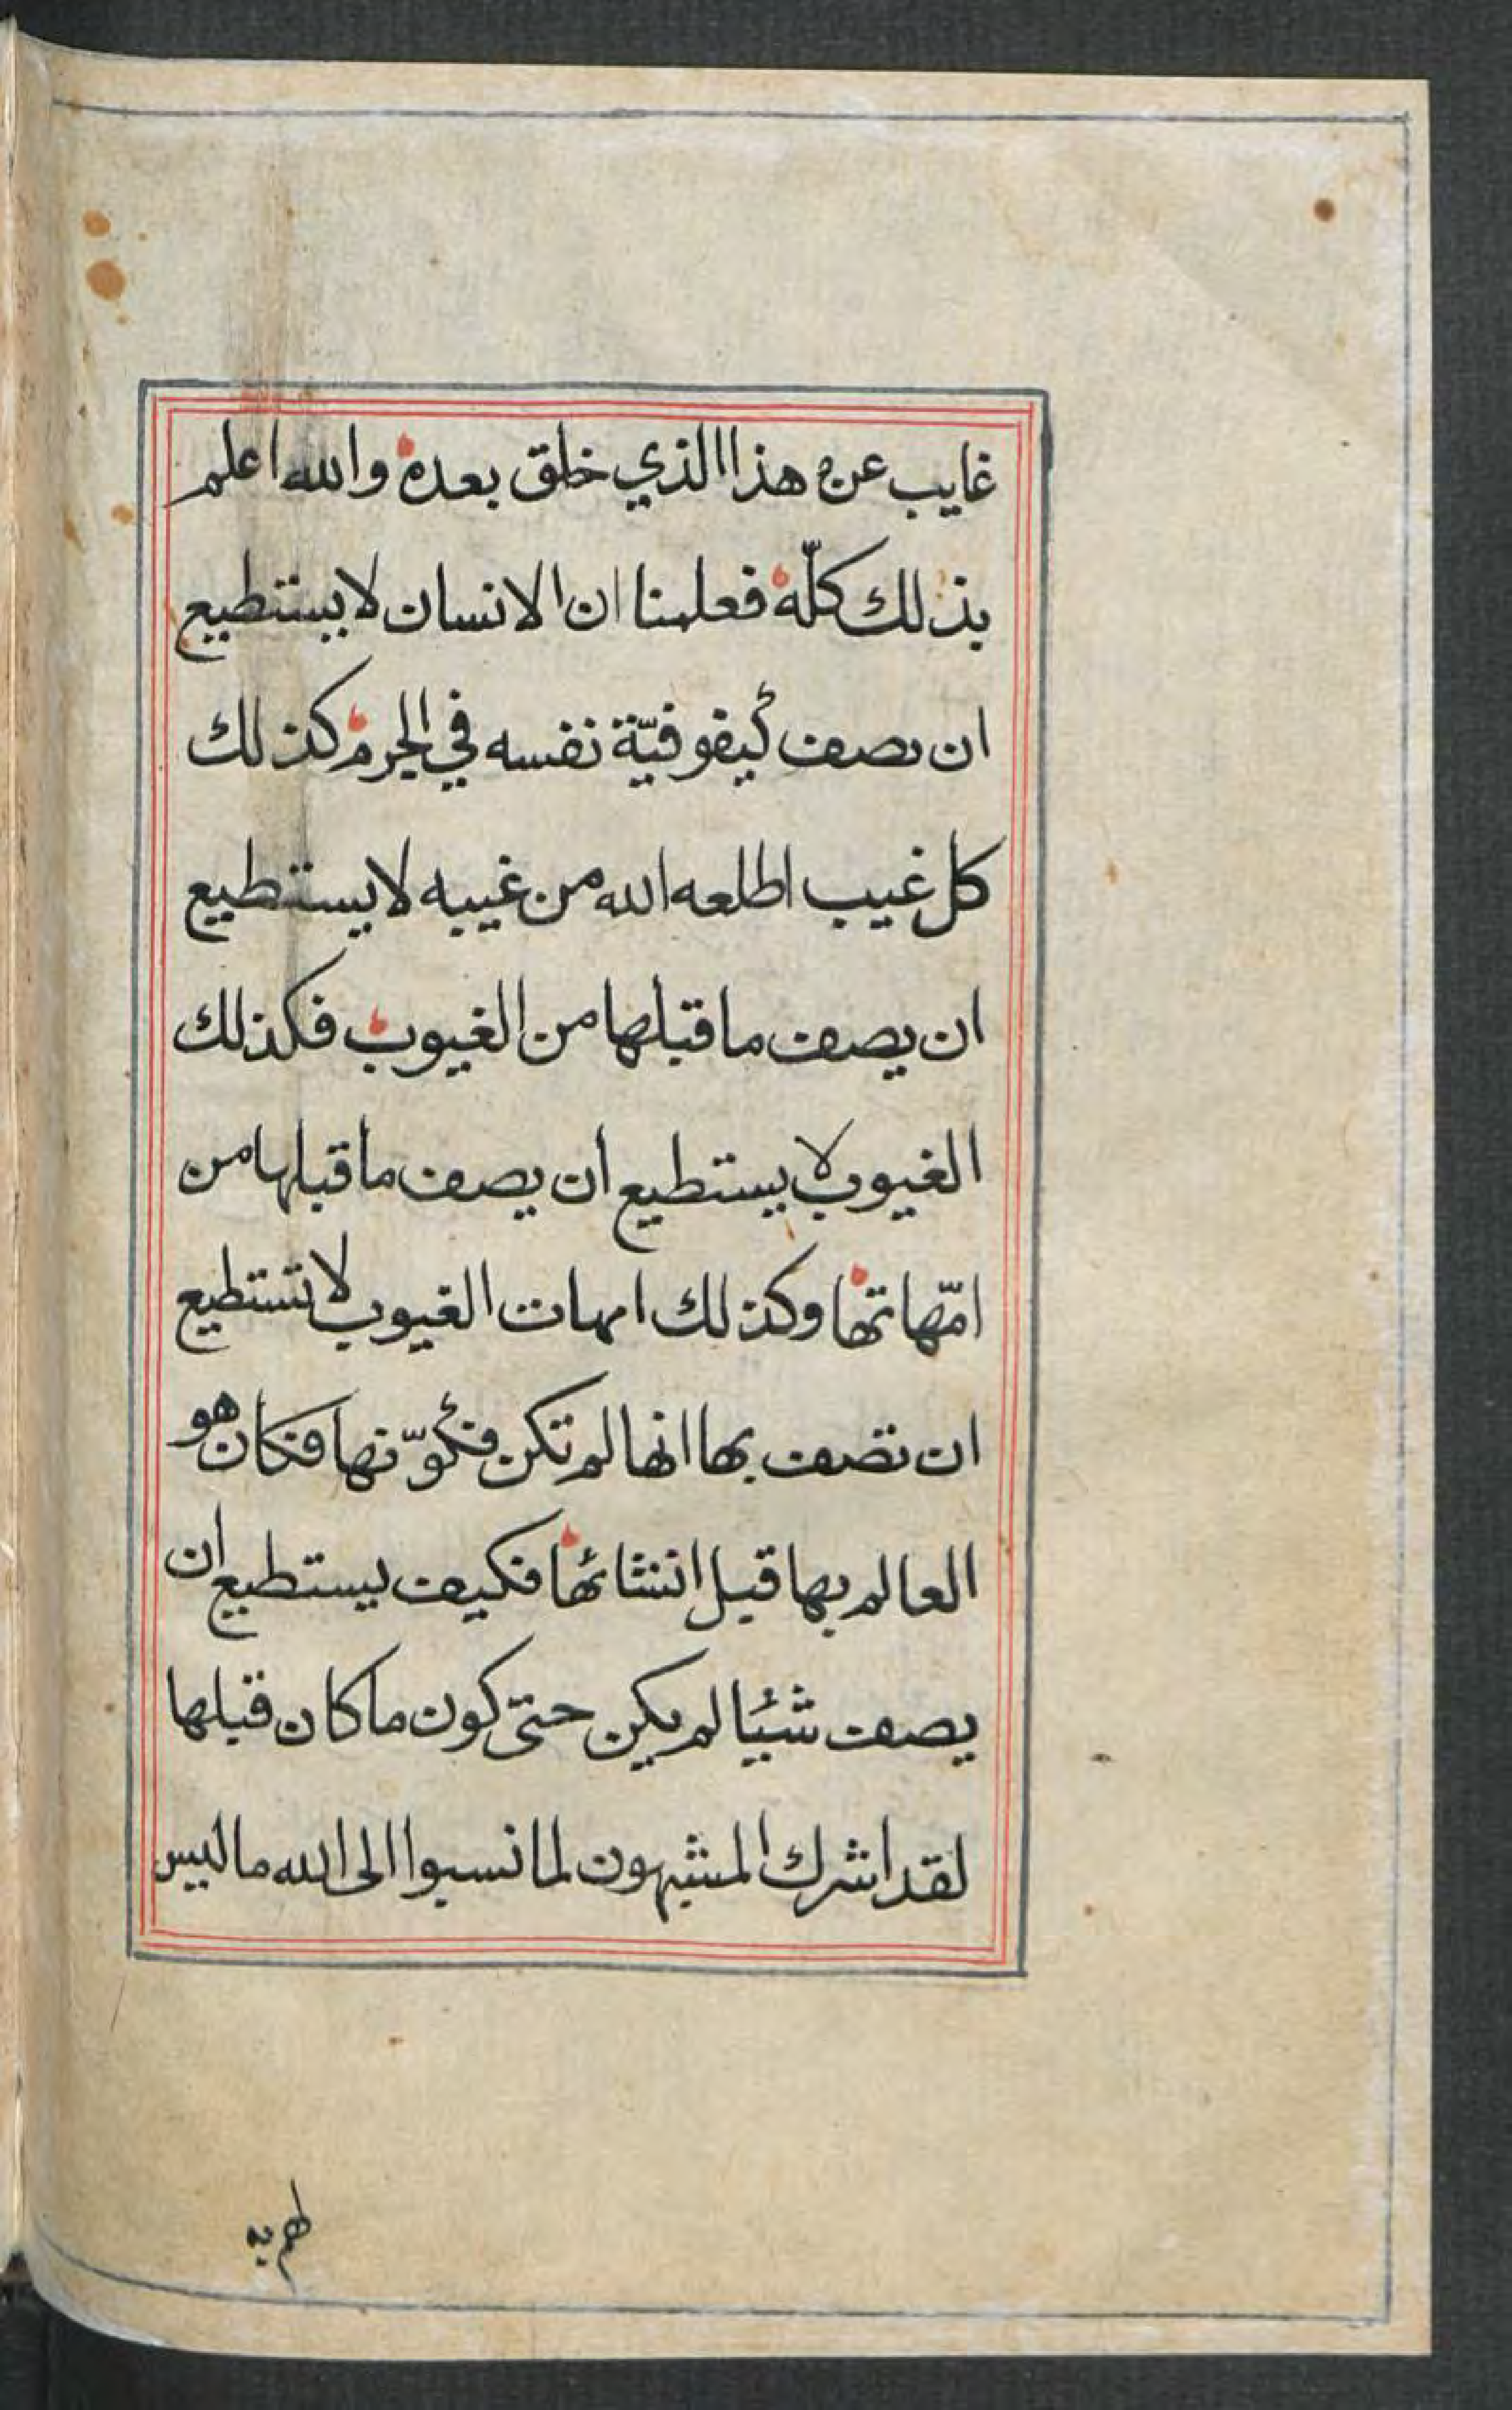 غايب عن هذا الذي خلق بعده والله اعلم
بذلك كلّه فعلمنا ان الانسان لا يستطيع
ان يصف كيفوفيّة نفسه في الجرم كذلك
كل غيب اطلعه الله من غيبه لا يستطيع
ان يصف ما قبلها من الغيوب فكذلك
الغيوب لا يستطيع ان يصف ما قبلها من
امّهاتها وكذلك امهات الغيوب لا تستطيع
ان تصف بها انها لم تكن فكوّنها فكان هو
العالم بها قبل انشائها فكيف يستطيع ان
يصف شيئا لم يكن حتى كون ما كان قبلها
لقد اشرك المشبهون لما نسبوا الى الله ما ليس
لهم به